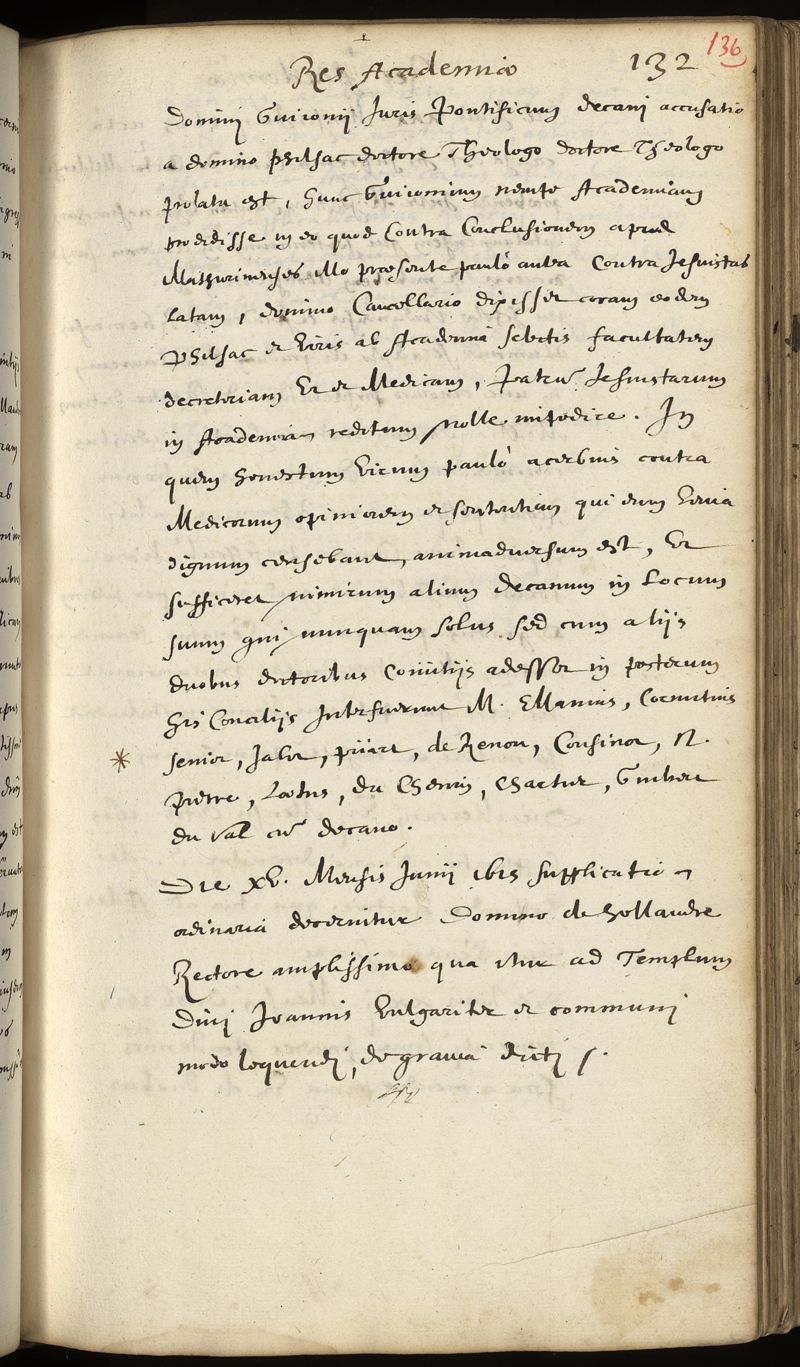 Res Academiæ 132 136
Dominj Guironij Juris Pontificum decanj accusatio
a domino philsac doctore Theologo doctore Theologo
prolata est, hunc Guironium nempe Academiam
prodidisse in eo quod contra Conclusionem apud
Mathurinenses illo præsente paulò antea contra Jesuistas
Latam, domino Cancellario dixisset coram eodem
Philsac et viris ab Academiâ selectis facultatem
decretoriam et Medicam, Patrum Jesuistarum
in Academiam reditum nolle impedire. In
quem honestum virum paulò acerbius contra
Medicorum opinionem et sententiam qui eum veniâ
dignum censebant, animadversum est, Ut
sufficeret nimirum alium decanum in Locum
suum qui nunquam solus sed cum alijs
duobus doctoribus comitijs adesset in posterum
his Concilijs Interfuerunt M. Cornutius
senior, Jabot, piiart, de Renou, Cousinot, N.
pietre, du Chemin, Chartier, Guibert
du val cum decano.
Die XV. Mensis Junij 1615 supplicatio
ordinaria decernitur Domino de hollandre
Rectore amplissimo qua itur ad Templum
Divj Joannis Vulgariter et communj
modo loquendj, de graviâ dictj